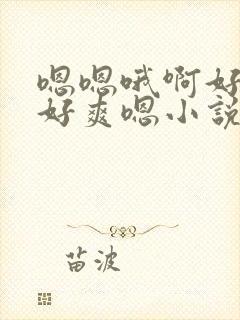 嗯嗯哦啊好
好爽嗯小説
苗波